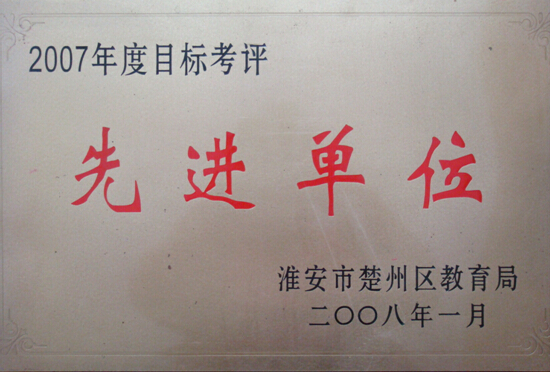 2007年度目标考评
先进单位
淮安市楚州区教育局
二〇〇八年一月